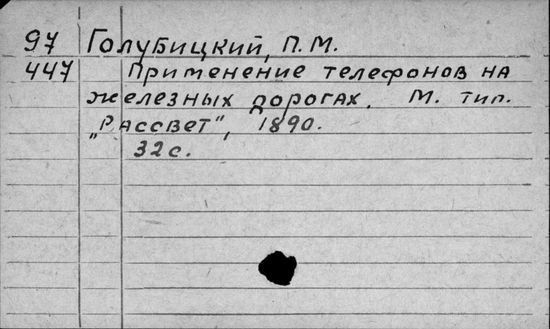 97 Голубицкий, П.М.
447 Применение телефонов на
железных дорогах. М. тип.
„Рассвет", 1890.
32 с.